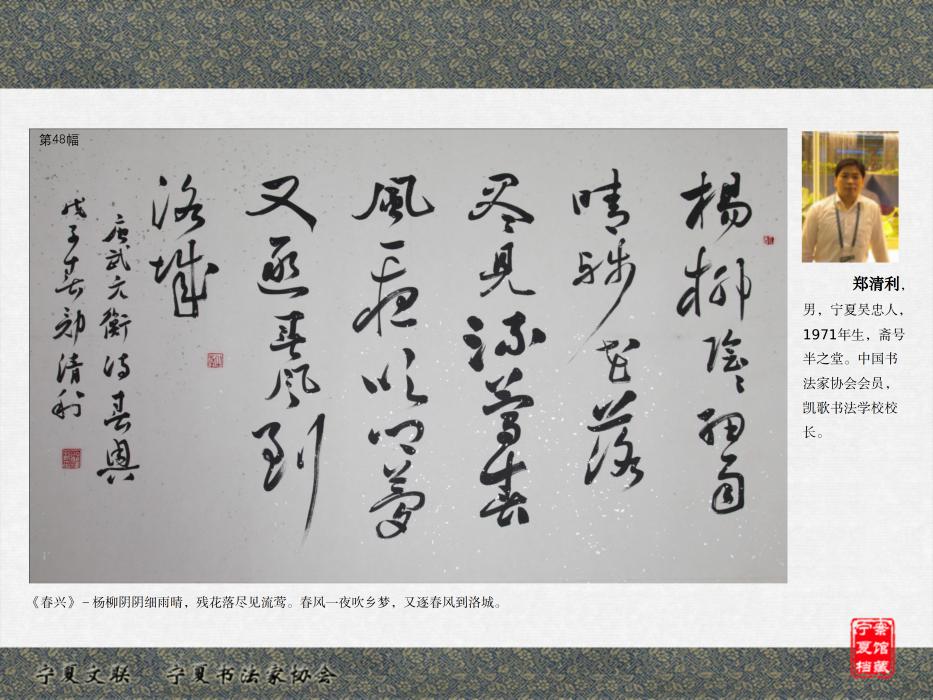 第48幅
楊柳陰〻細雨
晴殘花落
尽見流莺春
風一夜吹鄉夢
又逐春風到
洛城
唐武元衡诗春興
戊子春郑清利
郑清利，
男，宁夏吴忠人，
1971年生，斋号
半之堂。中国书
法家协会会员，
凯歌书法学校校
长。
《春兴》– 杨柳阴阴细雨晴，残花落尽见流莺。春风一夜吹乡梦，又逐春风到洛城。
宁夏文联 宁夏书法家协会
宁夏档案馆藏